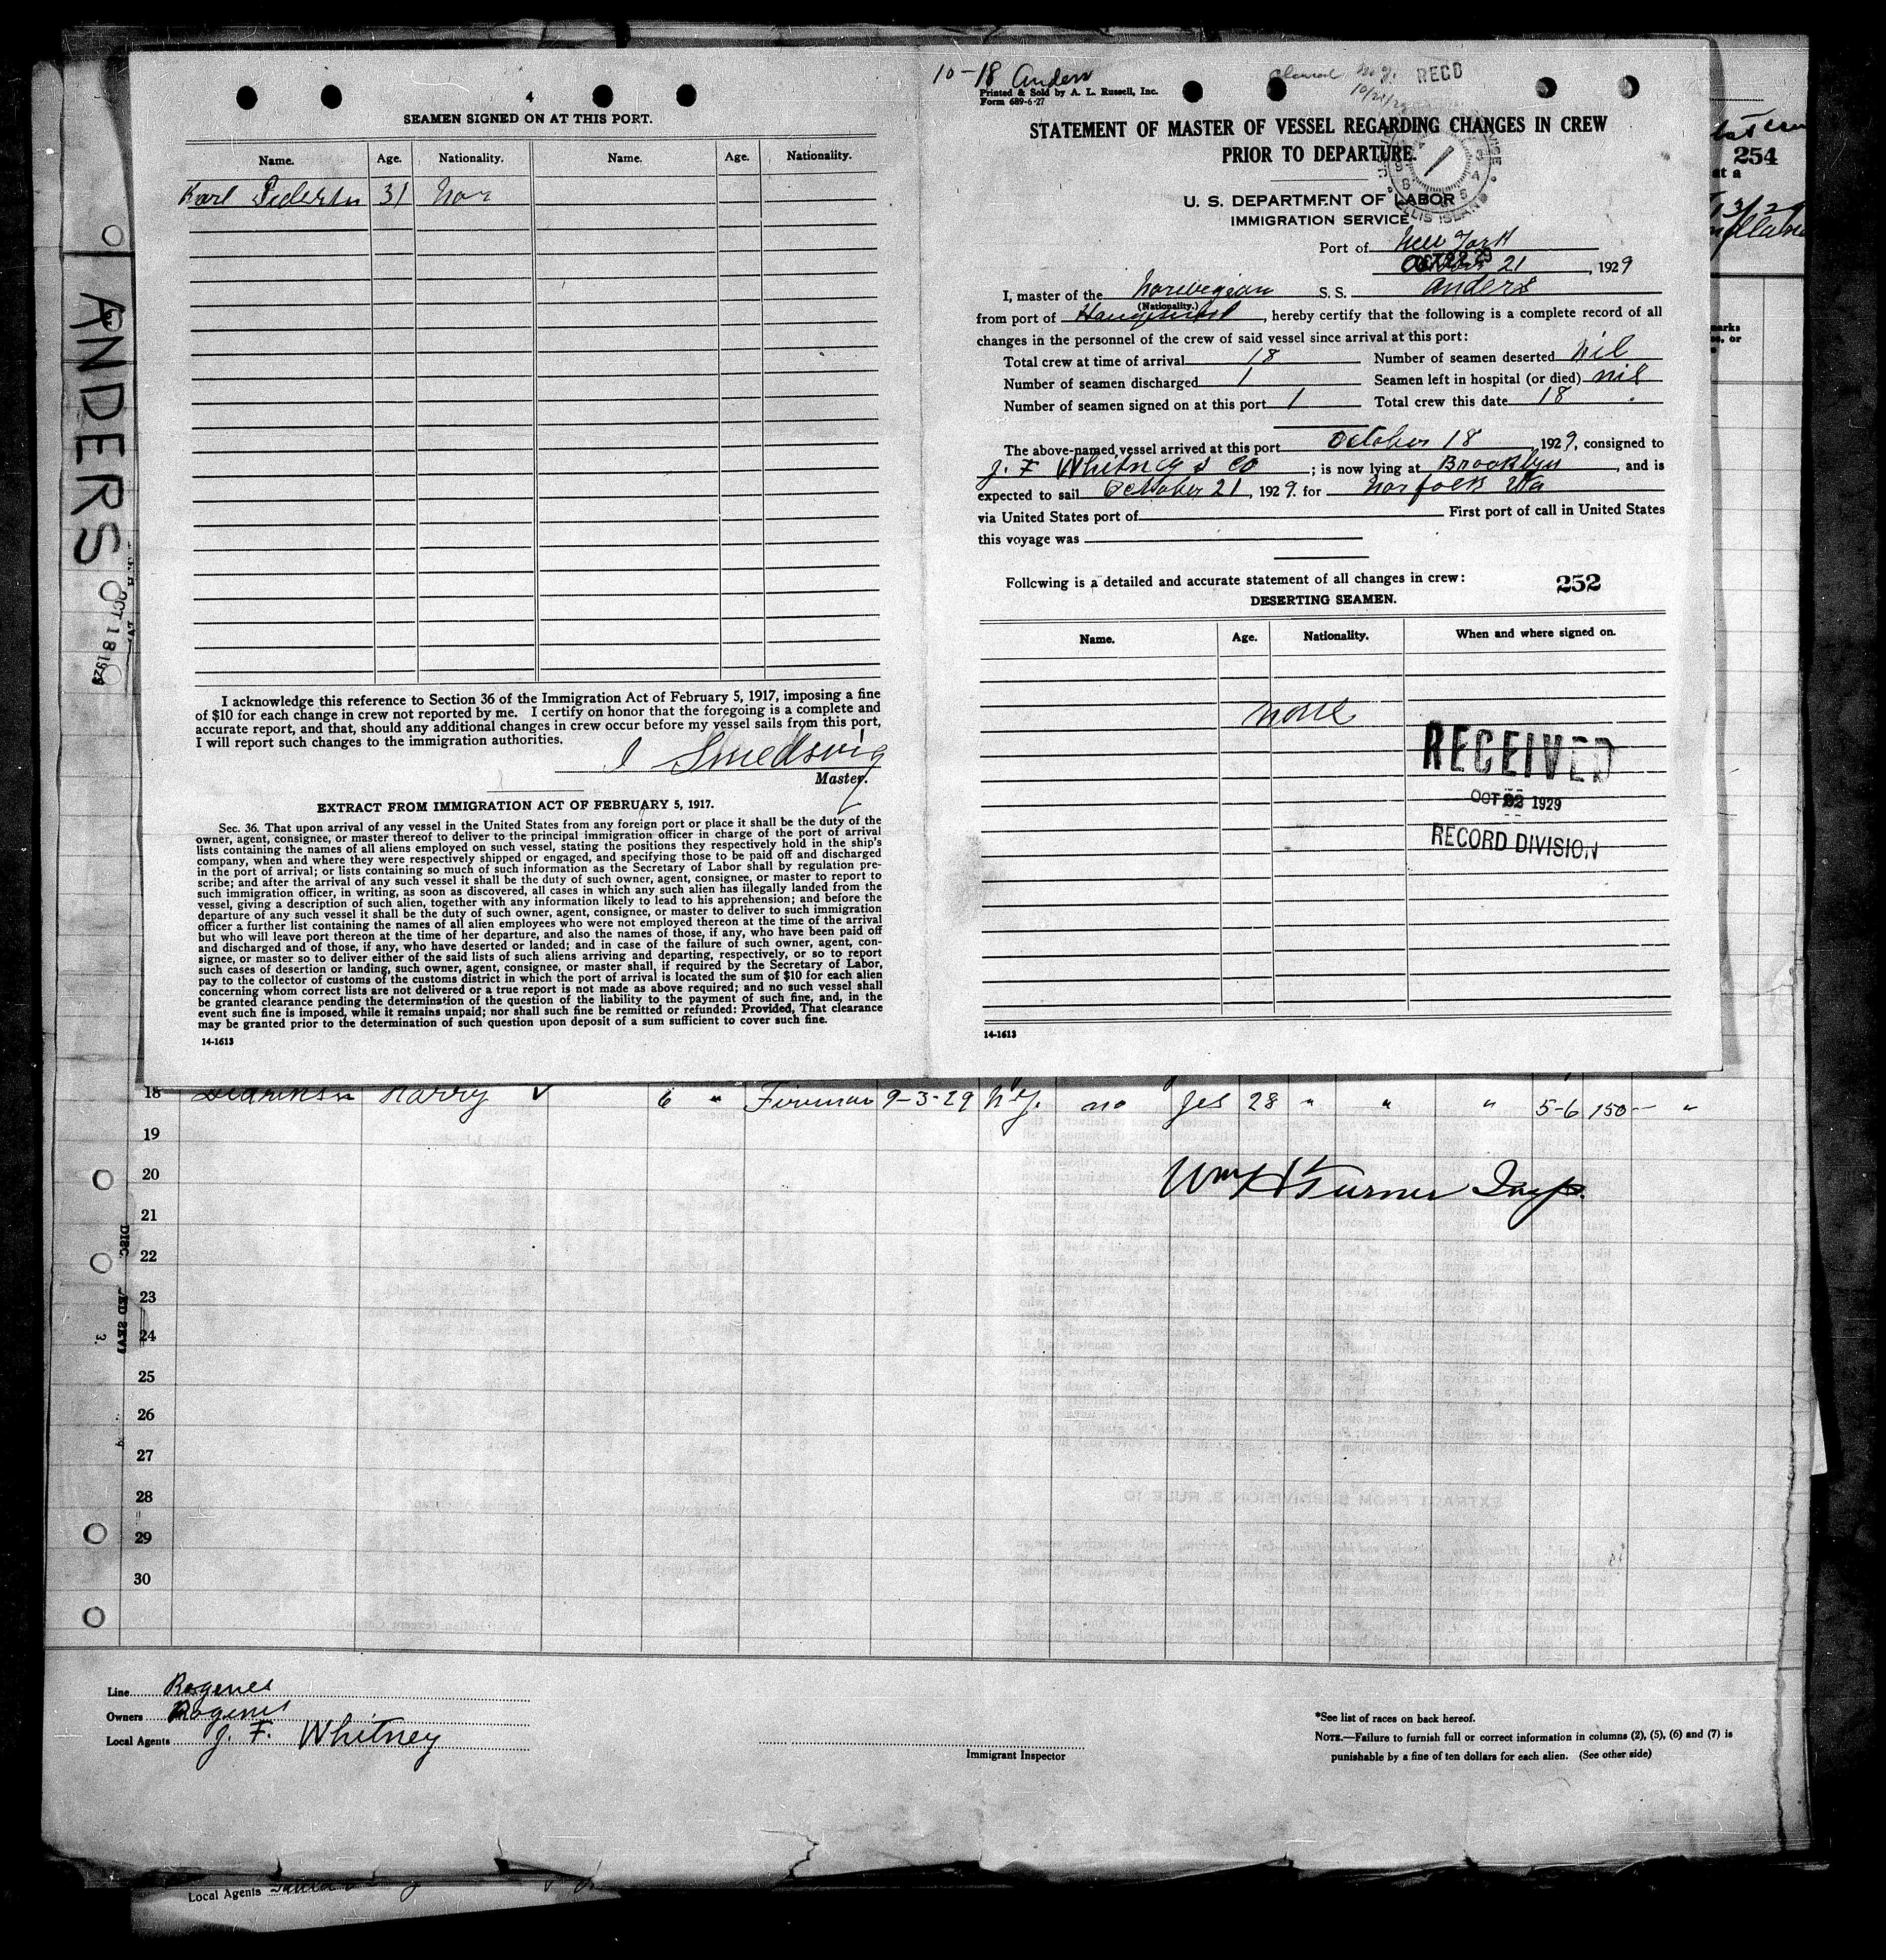 4
SEAMEN SIGNED ON AT THIS PORT.
Name. Age. Nationality. Name. Age. Nationality.
Karl Pedersen 31 Nor
I acknowledge this reference to Section 36 of the Immigration Act of February 5, 1917, imposing a fine
of $10 for each change in crew not reported by me. I certify on honor that the foregoing is a complete and
accurate report, and that, should any additional changes in crew occur before my vessel sails from this port,
I will report such changes to the immigration authorities.
I Smedsvig
Master.
EXTRACT FROM IMMIGRATION ACT OF FEBRUARY 5, 1917.
Sec. 36. That upon arrival of any vessel in the United States from any foreign port or place it shall be the duty of the
owner, agent, consignee, or master thereof to deliver to the principal immigration officer in charge of the port of arrival
lists containing the names of all aliens employed on such vessel, stating the positions they respectively hold in the ship's
company, when and where they were respectively shipped or engaged, and specifying those to be paid off and discharged
in the port of arrival; or lists containing so much of such information as the Secretary of Labor shall by regulation pre-
scribe; and after the arrival of any such vessel it shall be the duty of such owner, agent, consignee, or master to report to
such immigration officer, in writing, as soon as discovered, all cases in which any such alien has illegally landed from the
vessel, giving a description of such alien, together with any information likely to lead to his apprehension; and before the
departure of any such vessel it shall be the duty of such owner, agent, consignee, or master to deliver to such immigration
officer a further list containing the names of all alien employees who were not employed thereon at the time of the arrival
but who will leave port thereon at the time of her departure, and also the names of those, if any, who have been paid off
and discharged and of those, if any, who have deserted or landed; and in case of the failure of such owner, agent, con-
signee, or master so to deliver either of the said lists of such aliens arriving and departing, respectively, or so to report
such cases of desertion or landing, such owner, agent, consignee, or master shall, if required by the Secretary of Labor,
pay to the collector of customs of the customs district in which the port of arrival is located the sum of $10 for each alien
concerning whom correct lists are not delivered or a true report is not made as above required; and no such vessel shall
be granted clearance pending the determination of the question of the liability to the payment of such fine, and, in the
event such fine is imposed, while it remains unpaid; nor shall such fine be remitted or refunded: Provided, That clearance
may be granted prior to the determination of such question upon deposit of a sum sufficient to cover such fine.
14-1613
10-18 Anders
RECD
Printed & Sold by A. L. Russell, Inc.
Form 689-6-27
STATEMENT OF MASTER OF VESSEL REGARDING CHANGES IN CREW
PRIOR TO DEPARTURE.
U. S. DEPARTMENT OF LABOR
IMMIGRATION SERVICE
ELLIS ISLAND
Port of New York
October 21, 1929
I, master of the Norwegian S. S. Anders
(Nationality.)
from port of , hereby certify that the following is a complete record of all
changes in the personnel of the crew of said vessel since arrival at this port:
Total crew at time of arrival 18 Number of seamen deserted nil
Number of seamen discharged 1 Seamen left in hospital (or died) nil
Number of seamen signed on at this port 1 Total crew this date 18.
The above-named vessel arrived at this port October 18, 1929, consigned to
J. F Whitney & Co ; is now lying at Brooklyn, and is
expected to sail October 21, 1929. for Norfolk Va
via United States port of First port of call in United States
this voyage was
Following is a detailed and accurate statement of all changes in crew: 252
DESERTING SEAMEN.
Name. Age. Nationality. When and where signed on.
none
RECEIVED
OCT 22 1929
RECORD DIVISION
14-1613
254
at a
ANDERS
OCT 18 1929
18 Harry v 6 " Fireman 9-3-29 N.Y. no yes 28 " " " 5-6 150 — "
19
20 Wm H Turner Insp.
21
22
23
24
25
26
27
28
29
30
Line Rogenes
Owners Rogenes
Local Agents J. F. Whitney
Immigrant Inspector
*See list of races on back hereof.
NOTE.—Failure to furnish full or correct information in columns (2), (5), (6) and (7) is
punishable by a fine of ten dollars for each alien. (See other side)
Local Agents